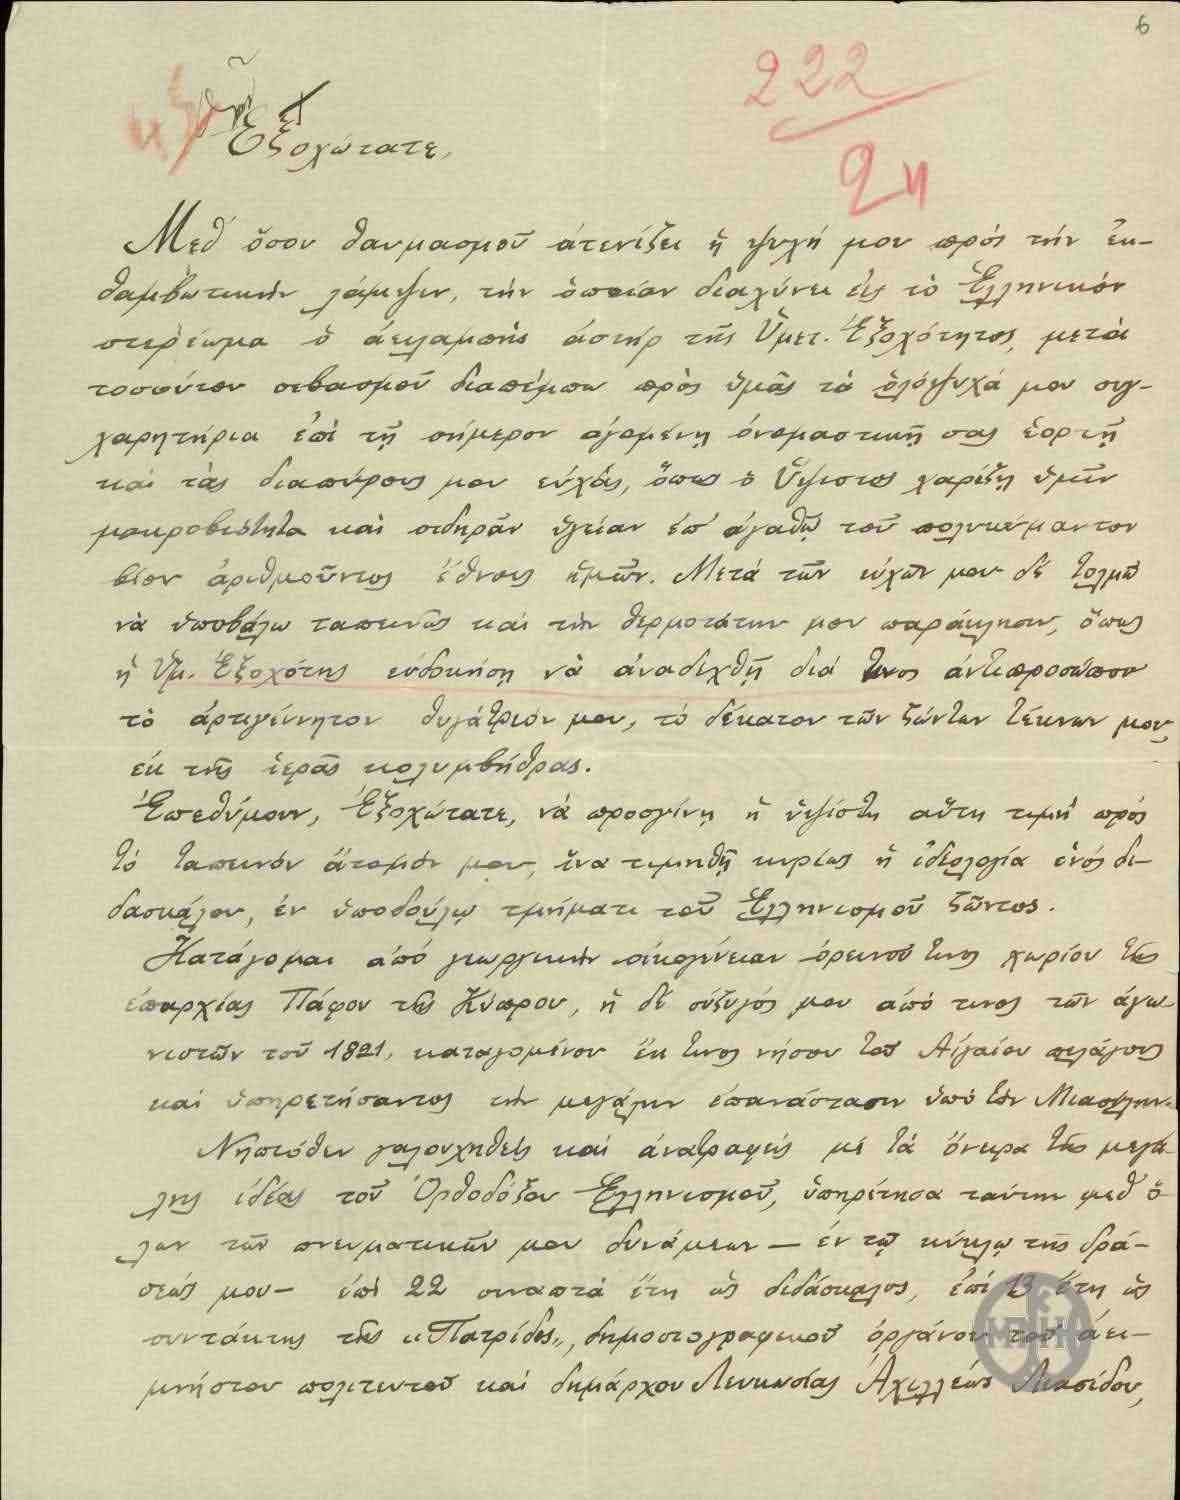 6
222
24
Ἐξοχώτατε,
Μεθ' ὅσου θαυμασμοῦ ἀτενίζει ἡ ψυχή μου πρός τήν ἐκ-
θαμβωτικήν λάμψιν, τήν ὁποίαν διαχύνει εἰς τὸ Ἑλληνικόν
στερέωμα ὁ ἀειλαμπὴς ἀστήρ τῆς Ὑμετ. Ἐξοχότητος, μετὰ
τοσούτου σεβασμοῦ διαπέμπω πρὸς ὑμᾶς τὰ ὁλόψυχά μου συγ-
χαρητήρια ἐπὶ τῇ σήμερον ἀγομένῃ ὀνομαστικῇ σας ἑορτῇ
καὶ τὰς διαπύρους μου εὐχάς, ὅπως ὁ Ὕψιστος χαρίζῃ ὑμῖν
μακροβιότητα καὶ σιδηρᾶν ὑγείαν ἐπ' ἀγαθῷ τοῦ πολυκύμαντον
βίον ἀριθμοῦντος ἔθνους ἡμῶν. Μετά τῶν εὐχῶν μου δέ τολμῶ
νὰ ὑποβάλω ταπεινῶς καὶ τὴν θερμοτάτην μου παράκλησιν, ὅπως
ἡ Ὑμ. Ἐξοχότης εὐδοκήσῃ νὰ ἀναδεχθῇ διά τινος ἀντιπροσώπου
τὸ ἀρτιγέννητον θυγάτριόν μου, τό δέκατον τῶν ζώντων τέκνων μου,
ἐκ τῆς ἱερᾶς κολυμβήθρας.
Ἐπεθύμουν, Ἐξοχώτατε, νά προσγίνῃ ἡ ὑψίστη αὕτη τιμή πρός
τό ταπεινόν ἄτομόν μου, ἵνα τιμηθῇ κυρίως ἡ ἰδεολογία ἑνός δι-
δασκάλου, ἐν ὑποδούλῳ τμήματι τοῦ Ἑλληνισμοῦ ζῶντος.
Κατάγομαι ἀπό γεωργικήν οἰκογένειαν ὀρεινοῦ τινος χωρίου τῆς
ἐπαρχίας Πάφου τῆς Κύπρου, ἡ δέ σύζυγός μου ἀπό τινος τῶν ἀγω-
νιστῶν τοῦ 1821, καταγομένου ἔκ τινος νήσου τοῦ Αἰγαίου πελάγους
καί ὑπηρετήσαντος τήν μεγάλην ἐπανάστασιν ὑπό τόν Μιαούλην.
Νηπιόθεν γαλουχηθείς καί ἀνατραφείς μέ τά ὄνειρα τῆς μεγά-
λης ἰδέας τοῦ Ὀρθοδόξου Ἑλληνισμοῦ, ὑπηρέτησα ταύτην μεθ' ὅ-
λων τῶν πνευματικῶν μου δυνάμεων — ἐν τῷ κύκλῳ τῆς δρά-
σεώς μου — ἐπὶ 22 συναπτά ἔτη ὡς διδάσκαλος, ἐπί 13 ἔτη ὡς
συντάκτης τῆς «Πατρίδος», δημοσιογραφικοῦ ὀργάνου τοῦ ἀει-
μνήστου πολιτευτοῦ καί δημάρχου Λευκωσίας Ἀχιλλέως Λιασίδου,